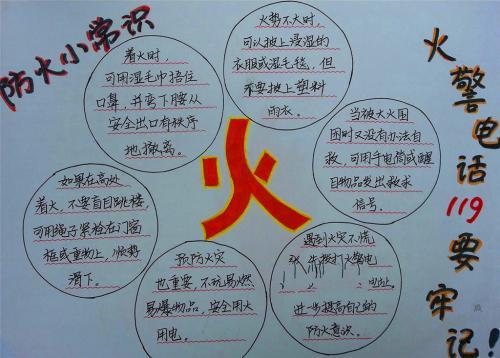 防火小常识
着火时,
可用湿毛巾捂住
口鼻,并弯下腰从
安全出口有秩序
地撤离。
火势不大时,
可以披上浸湿的
衣服或湿毛毯,但
不要披上塑料
雨衣。
火
当被大火围
困时又没有办法自
救,可用手电筒或醒
目物品发出求救
信号。
如果在高处
着火,不要盲目跳楼,
可用绳子紧拴在门窗
框或重物上,顺势
滑下。
预防火灾
也重要,不玩易燃
易爆物品,安全用火
用电。
遇到火灾不慌
张,先拨打火警电
地址。
进一步提高自己的
防火意识。
火警电话119要牢记!